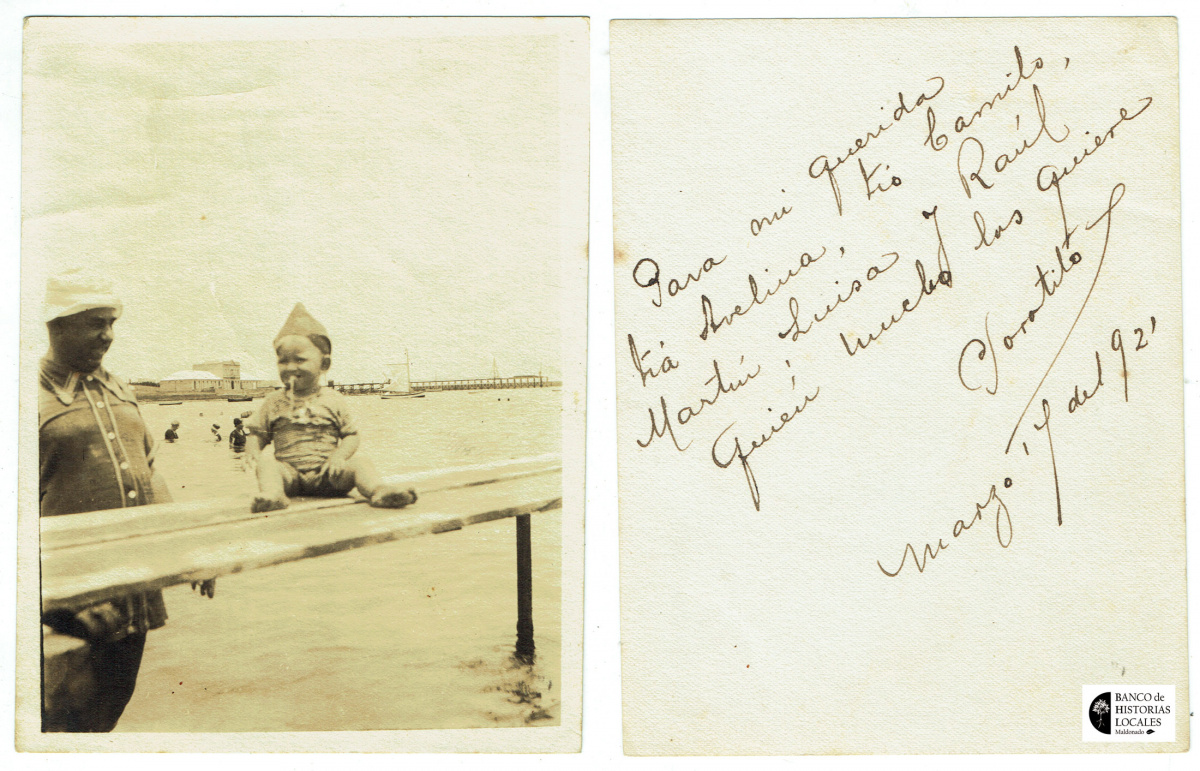 Para mi querida
tiá Avelina, tio Camilo,
Martín, Luisa y Raúl
Quién mucho los quiere
Marzo 17 del 921
BANCO de
HISTORIAS
LOCALES
Maldonado